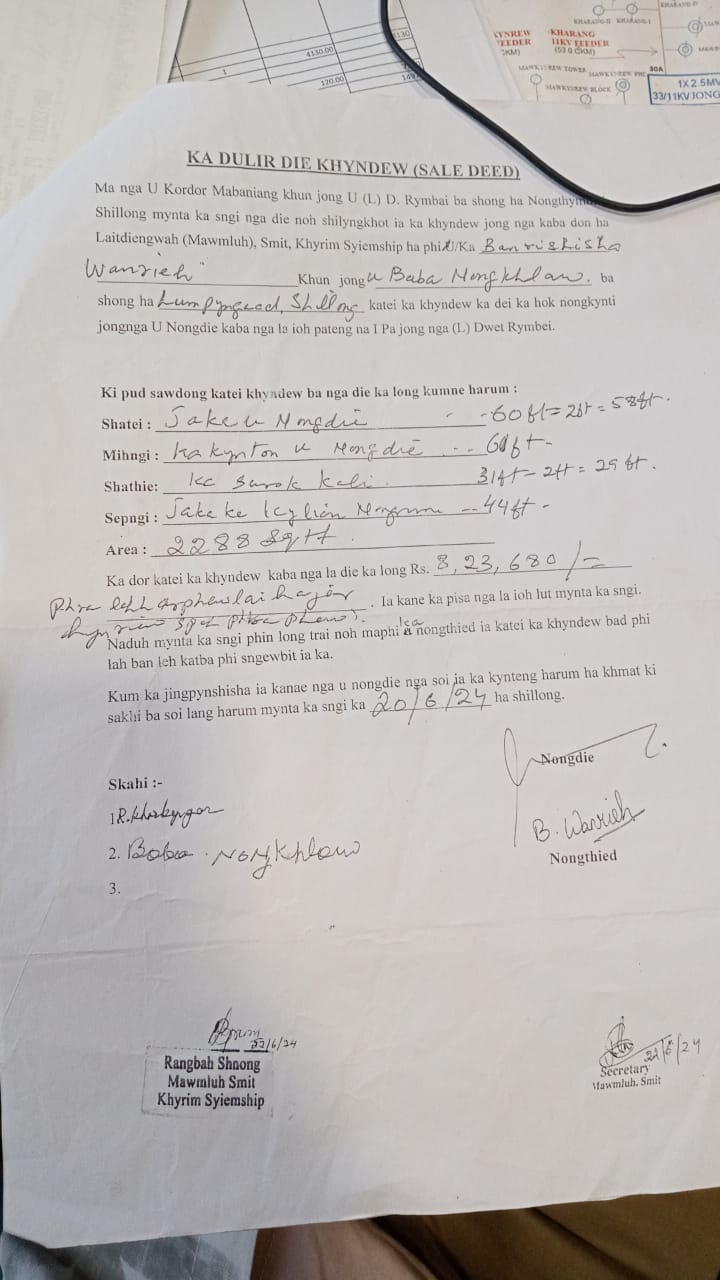 4130.00
4130
1
120.00
149
KHARANG-II KHARANG-I
KYNREW
FEEDER
KHARANG
11KV FEEDER
(53.0 CKM)
MAWKYNREW TOWER
MAWKYNREW PHE
30A
MAWKYNREW BLOCK
1X2.5MV
33/11KV JONG
KA DULIR DIE KHYNDEW (SALE DEED)
Ma nga U Kordor Mabaniang khun jong U (L) D. Rymbai ba shong ha
Shillong mynta ka sngi nga die noh shilyngkhot ia ka khyndew jong nga kaba don ha
Laitdiengwah (Mawmluh), Smit, Khyrim Syiemship ha phi U/Ka Banrishisha
Wanrieh Khun jong U Baba Nongkhlaw. ba
shong ha Lumpyngad, Shillong katei ka khyndew ka dei ka hok nongkynti
jongnga U Nongdie kaba nga la ioh pateng na I Pa jong nga (L) Dwet Rymbei.
Ki pud sawdong katei khyndew ba nga die ka long kumne harum :
Shatei : Jaka u Nongdie - - 60ft = 2ft = 58ft.
Mihngi : Ka kynton u Nongdie ... 60ft -
Shathie: Ka Surok Kali. 31ft - 2ft = 29ft.
Sepngi : Jaka ka -- 44ft -
Area : 2288 Sqft.
Ka dor katei ka khyndew kaba nga la die ka long Rs. 8,23,680/=
Phra lakh arphewlai hajar . Ia kane ka pisa nga la ioh lut mynta ka sngi.
hynriew spah phra phew).
Naduh mynta ka sngi phin long trai noh maphi ka nongthied ia katei ka khyndew bad phi
lah ban leh katba phi sngewbit ia ka.
Kum ka jingpynshisha ia kanae nga u nongdie nga soi ia ka kynteng harum ha khmat ki
sakhi ba soi lang harum mynta ka sngi ka 20/6/24 ha shillong.
Nongdie
Skahi :-
1.
B. Wanrieh
2. Baba . Nongkhlaw
Nongthied
3.
22/6/24
Rangbah Shnong
Mawmluh Smit
Khyrim Syiemship
21/6/24
Secretary
Mawmluh. Smit